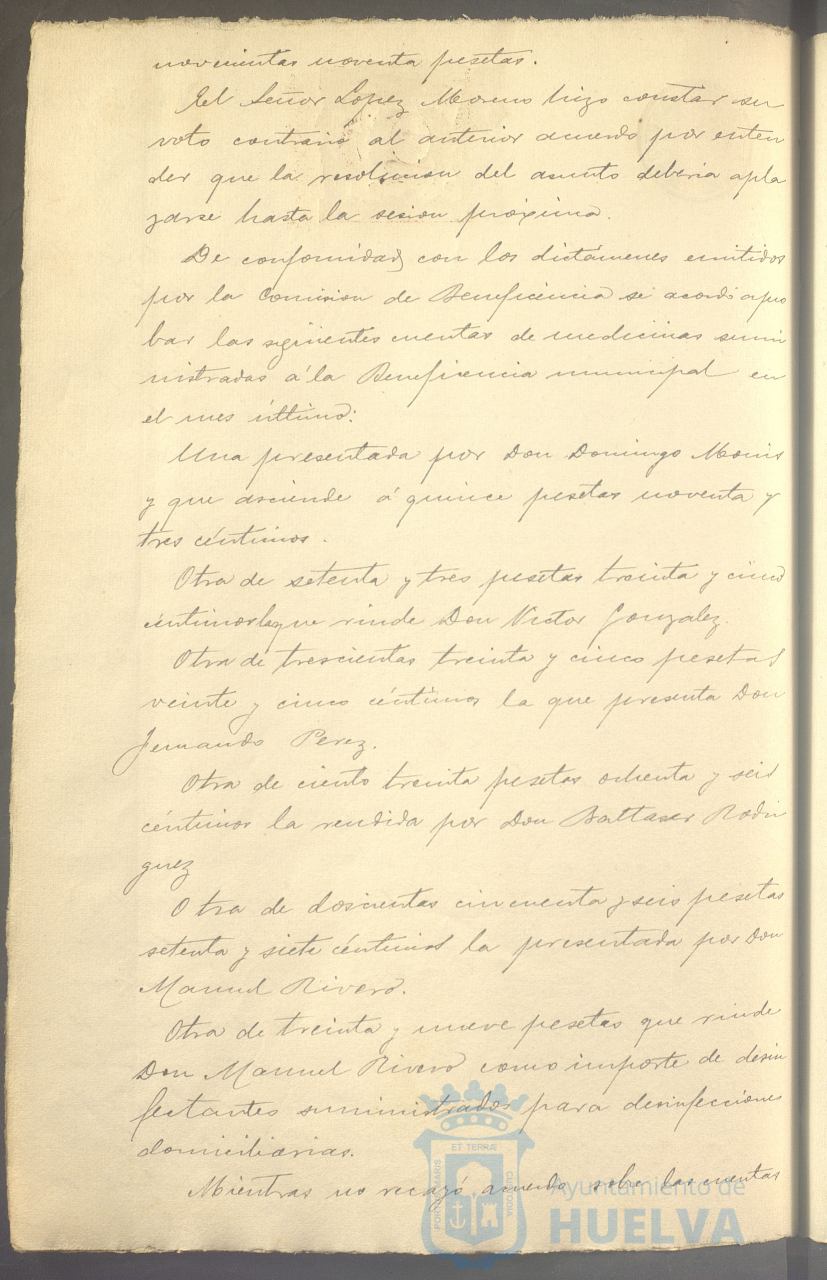 novecientas noventa pesetas.
El Señor Lopez Moreno hizo constar su
voto contrario al anterior acuerdo por enten
der que la resolucion del asunto deberia apla
zarse hasta la sesion próxima.
De conformidad con los dictámenes emitidos
por la Comision de Beneficencia se acordó apro
bar las siguientes cuentas de medicinas sumi
nistradas á la Beneficencia municipal en
el mes último:
Una presentada por Don Domingo
y que asciende á quince pesetas noventa y
tres céntimos.
Otra de setenta y tres pesetas treinta y cinco
céntimos la que rinde Don Victor Gonzalez.
Otra de trescientas treinta y cinco pesetas
veinte y cinco céntimos la que presenta Don
Fernando Perez.
Otra de ciento treinta pesetas ochenta y seis
céntimos la rendida por Don Baltasar Rodri
guez
Otra de doscientas cincuenta y seis pesetas
setenta y siete céntimos la presentada por Don
Manuel Rivero.
Otra de treinta y nueve pesetas que rinde
Don Manuel Rivero como importe de desin
fectantes suministrados para desinfecciones
domiciliarias.
Mientras no recayó acuerdo sobre las cuentas
ET TERRÆ
PORTUS MARIS
CUSTODIA
Ayuntamiento de
HUELVA